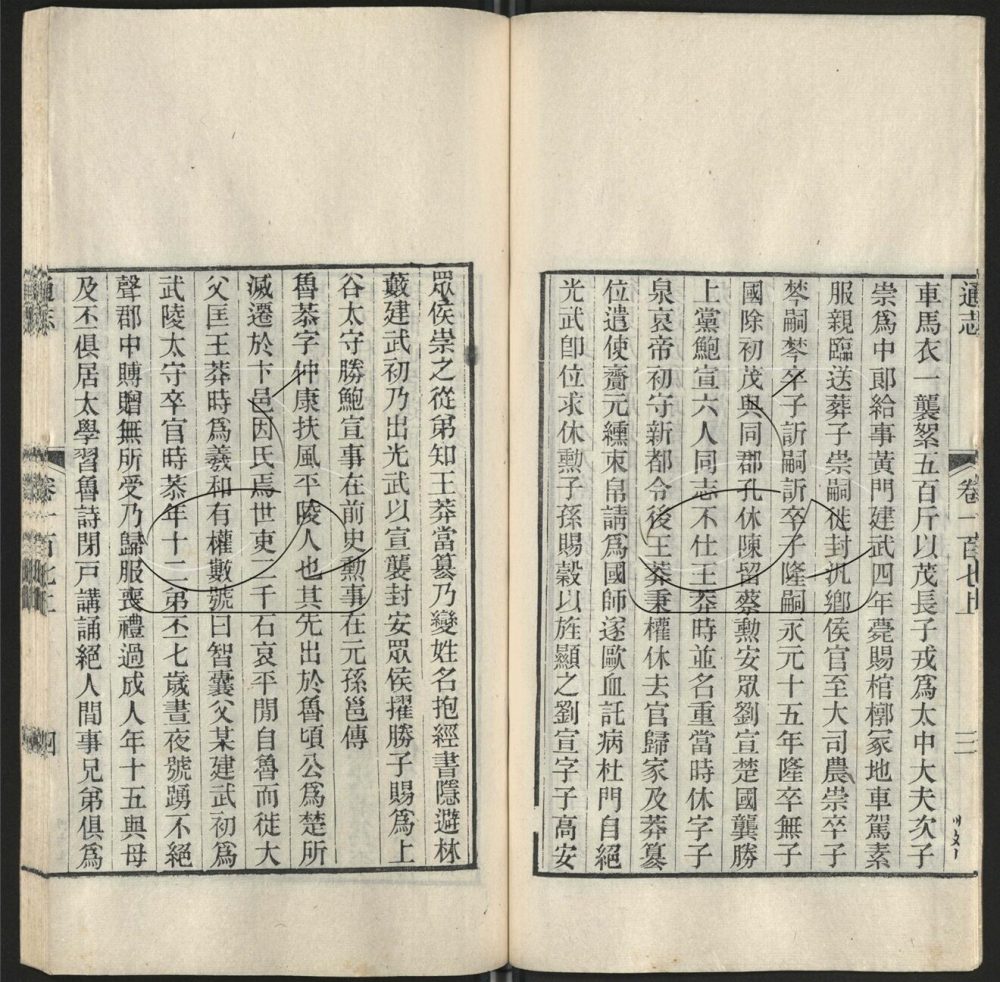 通志
卷一百七上
三
車馬衣一襲絮五百斤以茂長子戎爲太中大夫次子
崇爲中郞給事黃門建武四年薨賜棺槨冢地車駕素
服親臨送葬子崇嗣徙封汎鄕侯官至大司農崇卒子
棽嗣棽卒子訢嗣訢卒子隆嗣永元十五年隆卒無子
國除初茂與同郡孔休陳留蔡勳安眾劉宣楚國龔勝
上黨鮑宣六人同志不仕王莽時並名重當時休字子
泉哀帝初守新都令後王莽秉權休去官歸家及莽篡
位遣使齎元纁束帛請爲國師遂歐血託病杜門自絕
光武卽位求休勳子孫賜穀以旌顯之劉宣字子高安
眾侯崇之從弟知王莽當篡乃變姓名抱經書隱避林
藪建武初乃出光武以宣襲封安眾侯擢勝子賜爲上
谷太守勝鮑宣事在前史勳事在元孫邕傳
魯恭字仲康扶風平陵人也其先出於魯頃公爲楚所
滅遷於卞邑因氏焉世吏二千石哀平閒自魯而徙大
父匡王莽時爲羲和有權數號曰智囊父某建武初爲
武陵太守卒官時恭年十二弟丕七歲晝夜號踴不絕
聲郡中賻贈無所受乃歸服喪禮過成人年十五與母
及丕俱居太學習魯詩閉戸講誦絕人間事兄弟俱爲
通志
卷一百七上